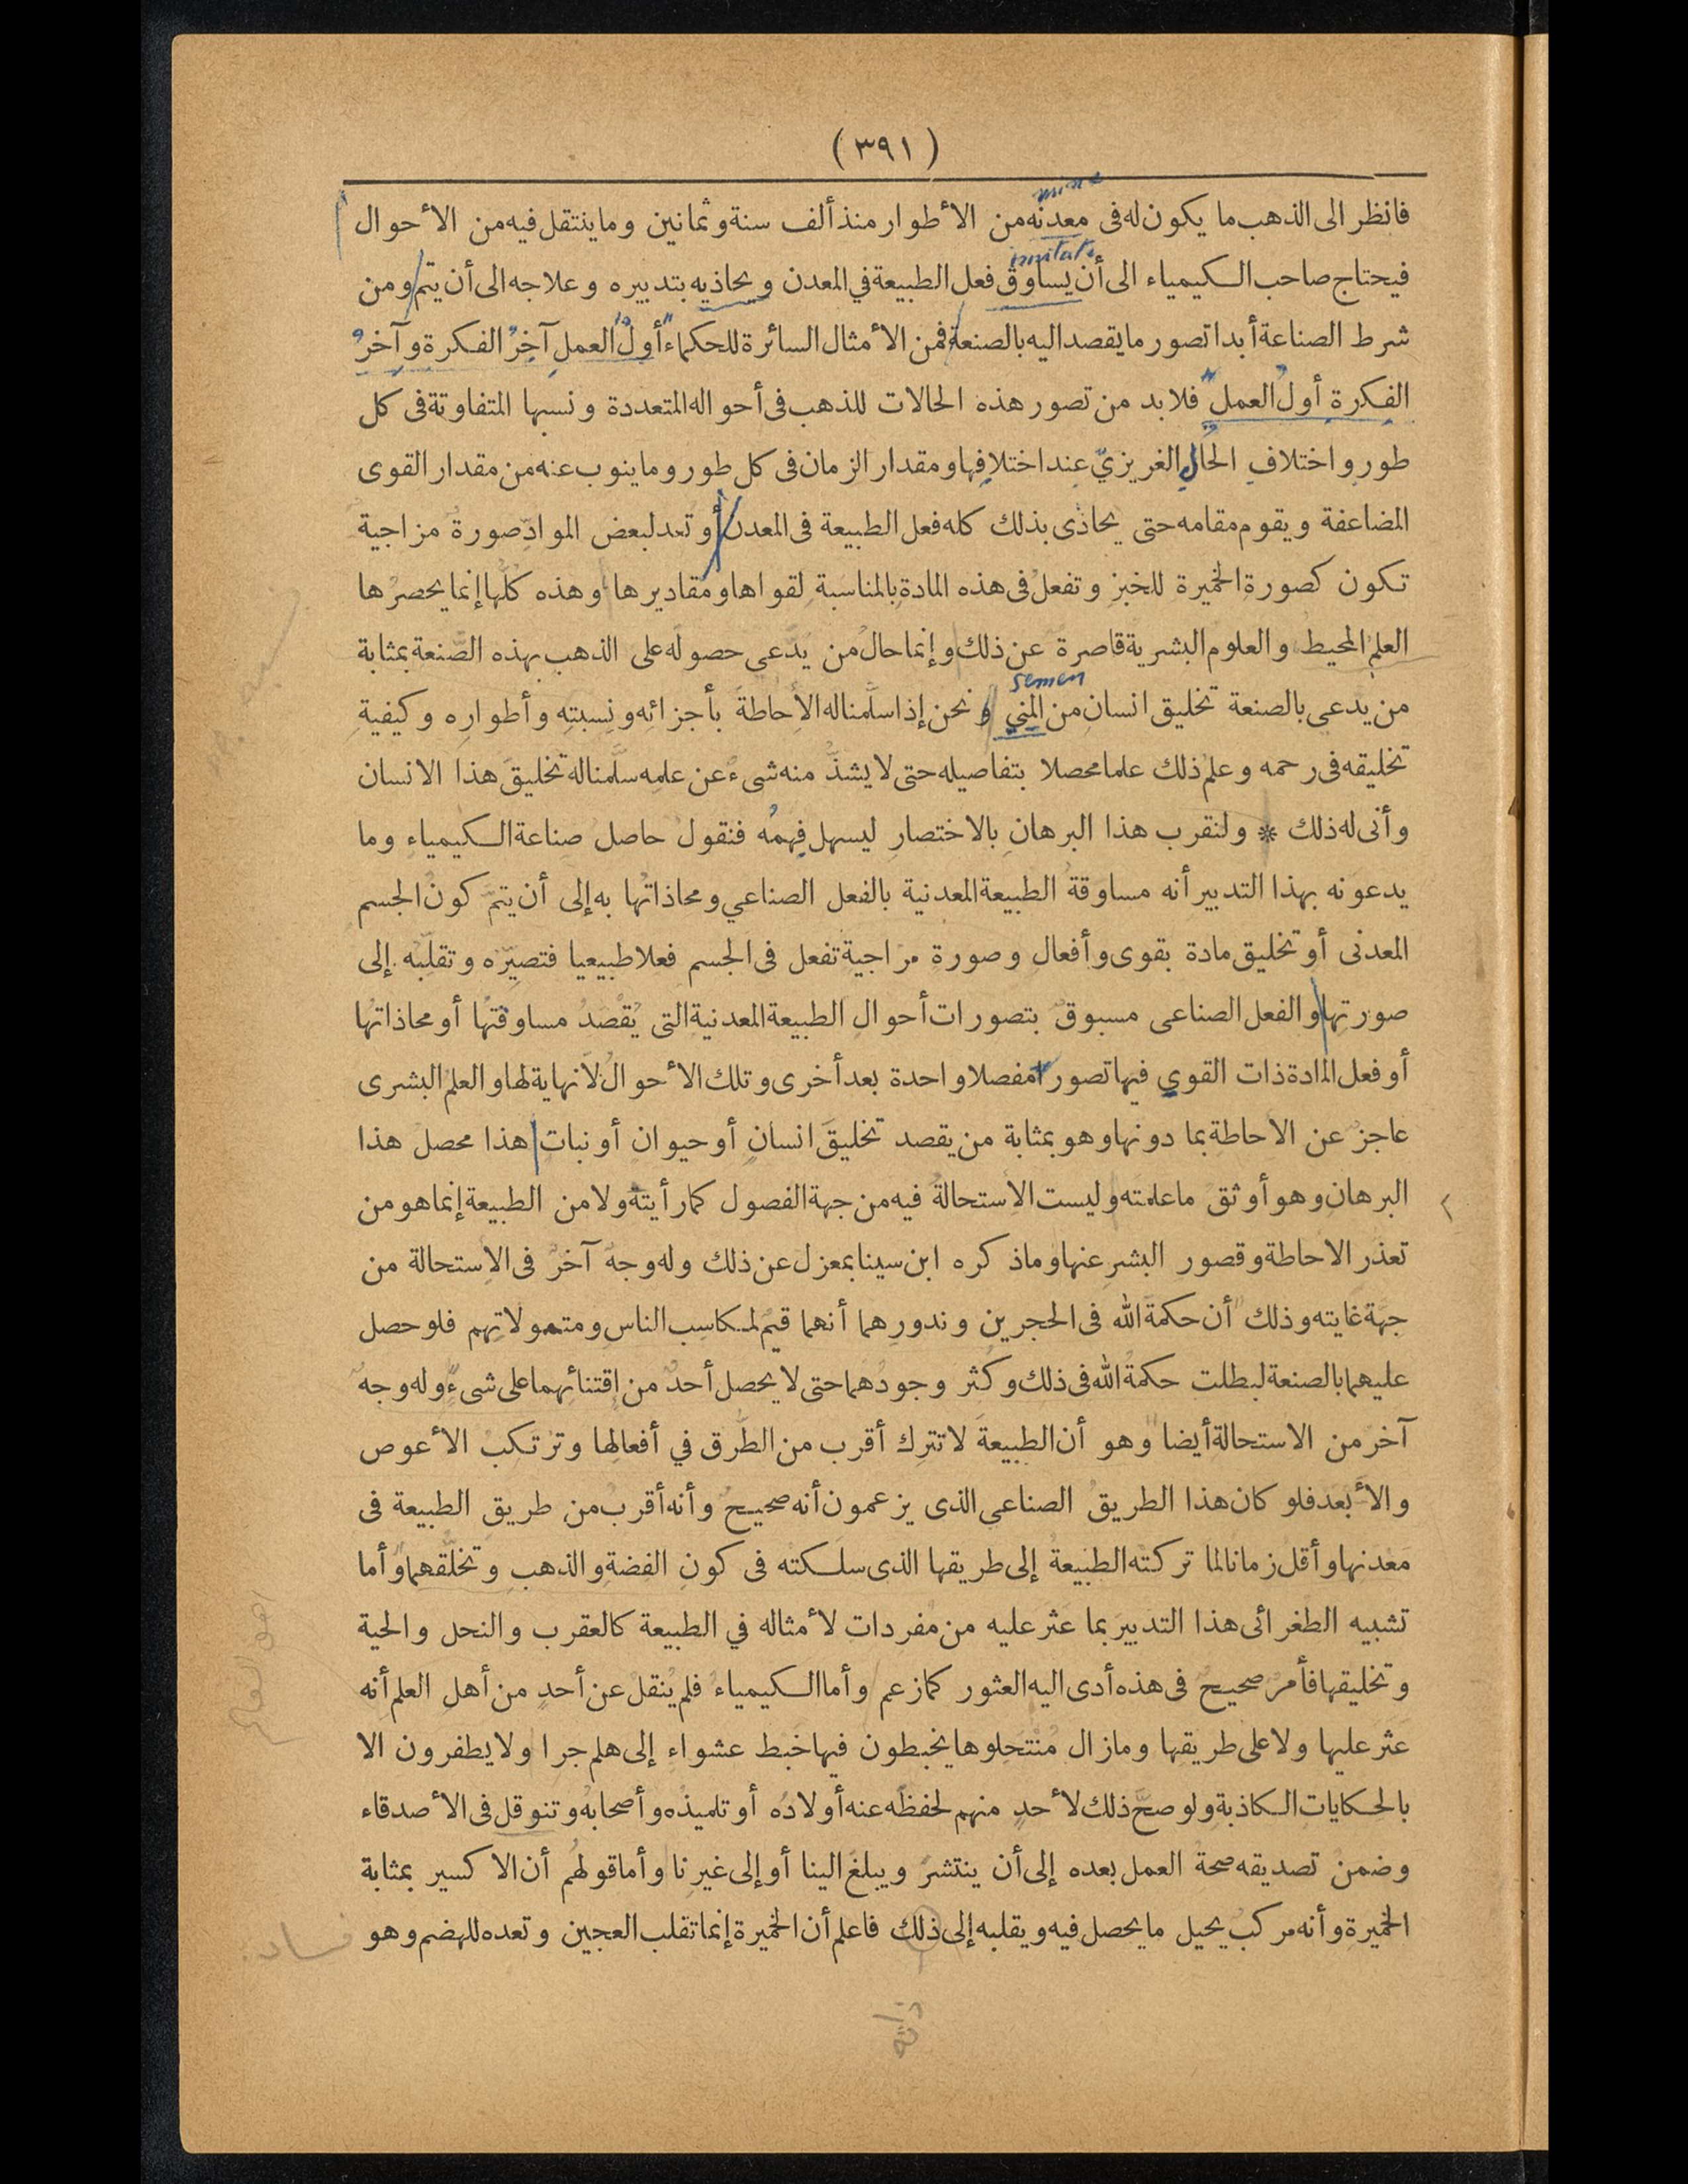 (٣٩١)
mine
فانظر الى الذهب ما يكون له فى معدنه من الأطوار منذ ألف سنة وثمانين وما ينتقل فيه من الأحوال
imitate
فيحتاج صاحب الكيمياء الى أن يساوق فعل الطبيعة في المعدن ويحاذيه بتدبيره وعلاجه الى أن يتم ومن
شرط الصناعة أبدا تصور ما يقصد اليه بالصنعة فمن الأمثال السائرة للحكماء أول العمل آخر الفكرة وآخر
الفكرة أول العمل فلا بد من تصور هذه الحالات للذهب فى أحواله المتعددة ونسبها المتفاوتة فى كل
طور واختلاف الحال الغريزيّ عند اختلافها ومقدار الزمان فى كل طور وما ينوب عنه من مقدار القوى
المضاعفة ويقوم مقامه حتى يحاذى بذلك كله فعل الطبيعة فى المعدن أو تعد لبعض الموادّ صورة مزاجية
تكون كصورة الخميرة للخبز وتفعل فى هذه المادة بالمناسبة لقواها ومقاديرها وهذه كلّها إنما يحصرها
العلم المحيط والعلوم البشرية قاصرة عن ذلك وإنما حال من يدّعى حصوله على الذهب بهذه الصّنعة بمثابة
semen
من يدعى بالصنعة تخليق انسان من المني ونحن إذا سلّمنا له الاحاطة بأجزائه ونسبته وأطواره وكيفية
تخليقه فى رحمه وعلم ذلك علما محصلا بتفاصيله حتى لا يشذّ منه شىء عن علمه سلّمنا له تخليق هذا الانسان
وأنى له ذلك * ولنقرب هذا البرهان بالاختصار ليسهل فهمه فنقول حاصل صناعة الكيمياء وما
يدعونه بهذا التدبير أنه مساوقة الطبيعة المعدنية بالفعل الصناعي ومحاذاتها به إلى أن يتمّ كون الجسم
المعدنى أو تخليق مادة بقوى وأفعال وصورة مزاجية تفعل فى الجسم فعلا طبيعيا فتصيّره وتقلّبه إلى
صورتها والفعل الصناعى مسبوق بتصورات أحوال الطبيعة المعدنية التى يُقصَدُ مساوقتها أو محاذاتها
أو فعل المادة ذات القوي فيها تصورا مفصلا واحدة بعد أخرى وتلك الأحوال لا نهاية لها والعلم البشرى
عاجز عن الاحاطة بما دونها وهو بمثابة من يقصد تخليق انسان أو حيوان أو نبات هذا محصل هذا
البرهان وهو أوثق ما علمته وليست الاستحالة فيه من جهة الفصول كما رأيته ولا من الطبيعة إنما هو من
تعذر الاحاطة وقصور البشر عنها وما ذكره ابن سينا بمعزل عن ذلك وله وجه آخر فى الاستحالة من
جهة غايته وذلك أن حكمة الله فى الحجرين وندورهما أنهما قيم لمكاسب الناس ومتمولاتهم فلو حصل
عليهما بالصنعة لبطلت حكمة الله فى ذلك وكثر وجودهما حتى لا يحصل أحد من اقتنائهما على شىء وله وجه
آخر من الاستحالة أيضا وهو أن الطبيعة لا تترك أقرب من الطّرق في أفعالها وترتكب الأعوص
والأبعد فلو كان هذا الطريق الصناعى الذى يزعمون أنه صحيح وأنه أقرب من طريق الطبيعة فى
معدنها وأقل زمانا لما تركته الطبيعة إلى طريقها الذى سلكته فى كون الفضة والذهب وتخلّقهما وأما
تشبيه الطغرائى هذا التدبير بما عثر عليه من مفردات لأمثاله في الطبيعة كالعقرب والنحل والحية
وتخليقها فأمر صحيح فى هذه أدى اليه العثور كما زعم وأما الكيمياء فلم ينقل عن أحد من أهل العلم أنه
عثر عليها ولا على طريقها وما زال مُنتحلوها يخبطون فيها خبط عشواء إلى هلم جرا ولا يظفرون الا
بالحكايات الكاذبة ولو صحّ ذلك لأحد منهم لحفظه عنه أولاده أو تلميذه وأصحابه وتنوقل فى الأصدقاء
وضمن تصديقه صحة العمل بعده إلى أن ينتشر ويبلغ الينا أو إلى غيرنا وأما قولهم أن الاكسير بمثابة
الخميرة وأنه مركب يحيل ما يحصل فيه ويقلبه إلى ذلك فاعلم أن الخميرة إنما تقلب العجين وتعده للهضم وهو
فساد
ذاته